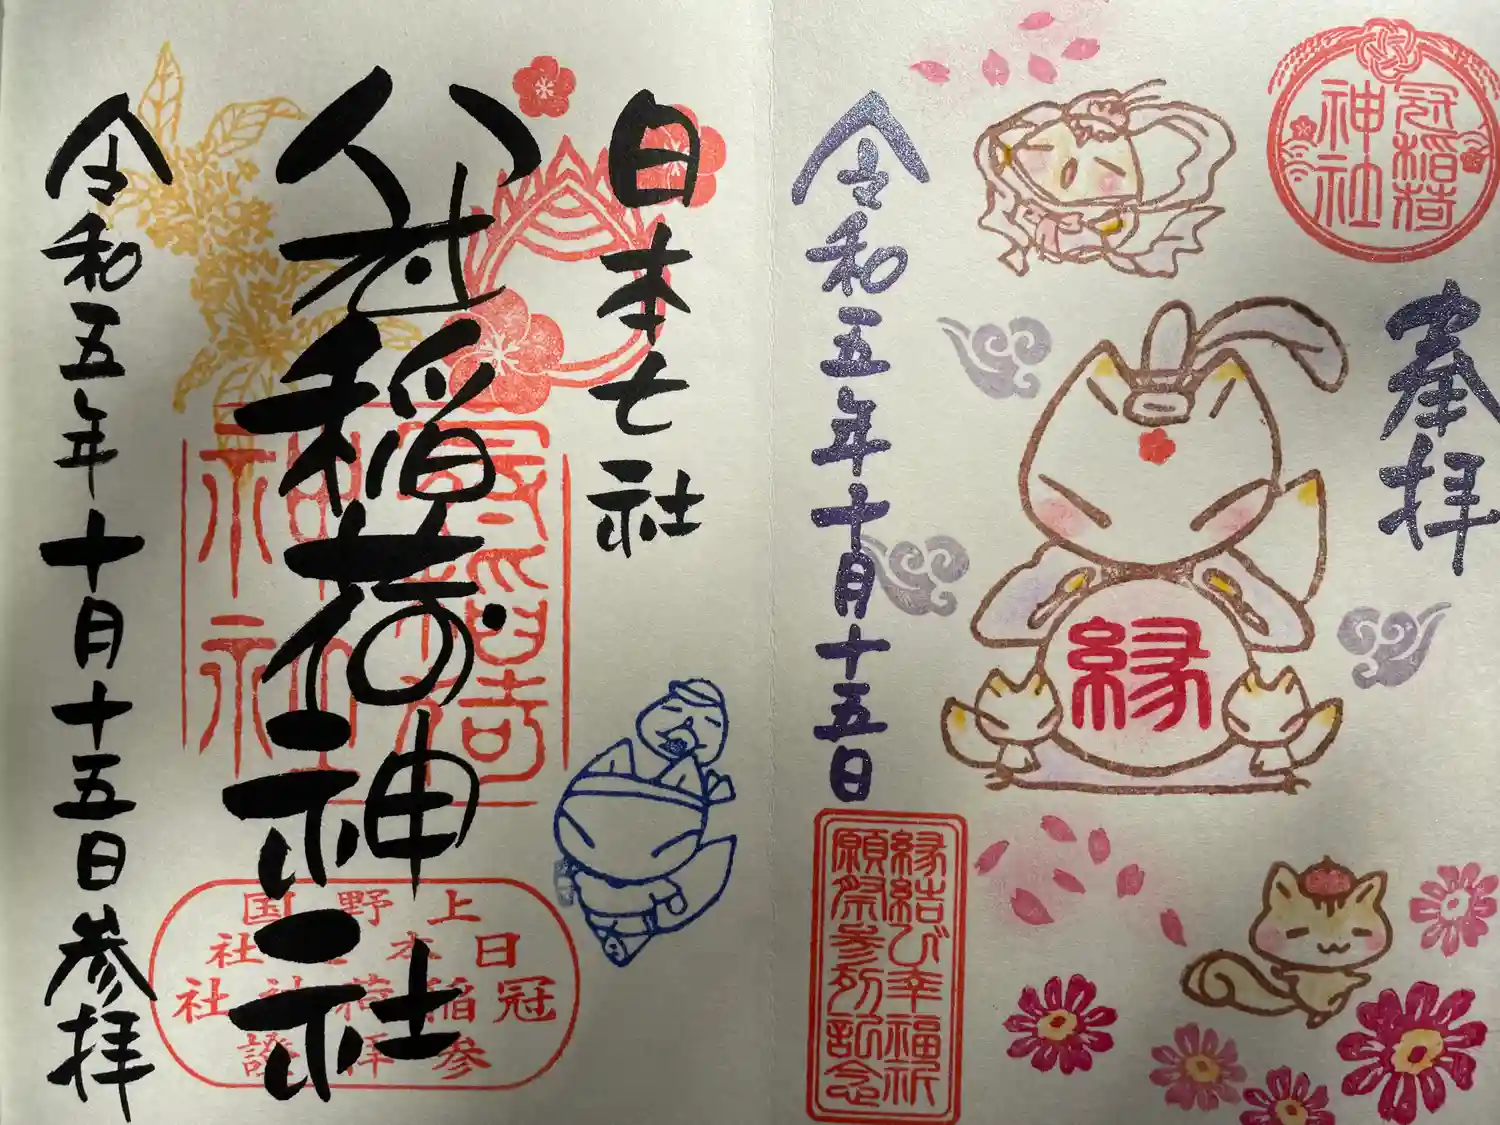 奉拝
冠稲荷
神社
縁
令和五年十月十五日
縁結び幸福祈
願祭参列記念
日本七社
冠稲荷神社
冠稲荷
神社
上野国
日本七社
冠稲荷神社
参拝證
令和五年十月十五日参拝